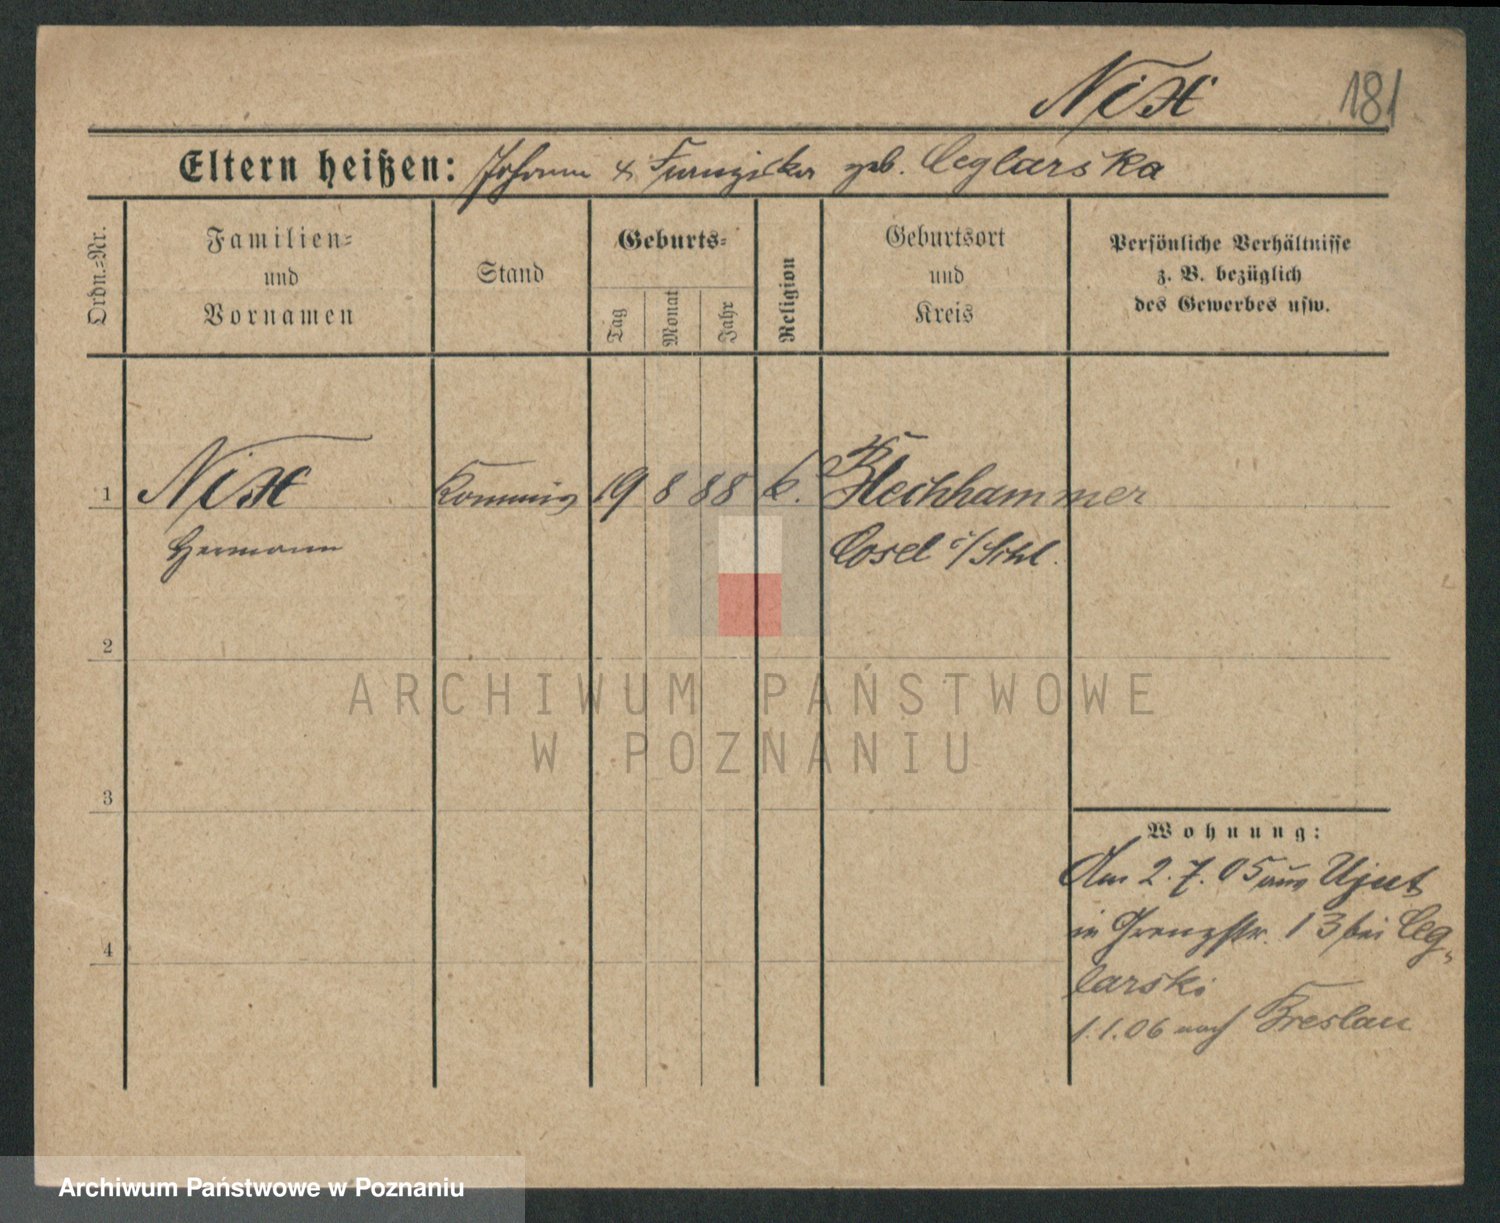 Nixt 181
Eltern heißen: Johann & Franziska geb. Ceglarska
Ordn.=Nr.
Familien=
und
Vornamen
Stand
Geburts=
Tag
Monat
Jahr
Religion
Geburtsort
und
Kreis
Persönliche Verhältnisse
z. B. bezüglich
des Gewerbes usw.
1 19 8 88 k. Blechhammer
Hermann Cosel i/Schl.
2
ARCHIWUM PAŃSTWOWE
W POZNANIU
3
Wohnung:
Am 2.7.05 aus Ujest
in Grenzstr. 13 bei Ceg-
4
larski
1.1.06 nach Breslau
Archiwum Państwowe w Poznaniu